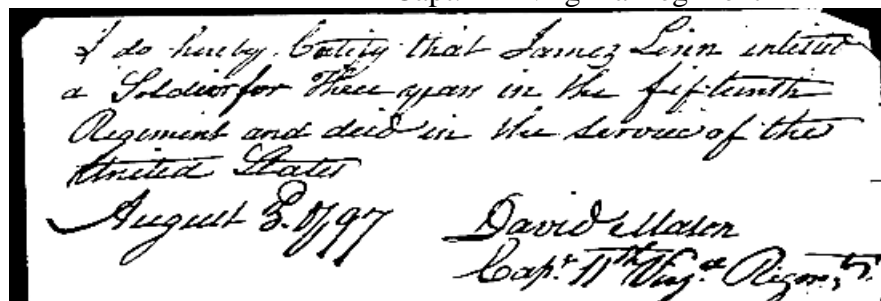 I do hereby Certify that James Linn inlisted
a Soldier for Three years in the fifteenth
Regiment and deid in the Service of the
United States
August 3. 1797
David Mason
Capt. 11th Virg.a Regm.t